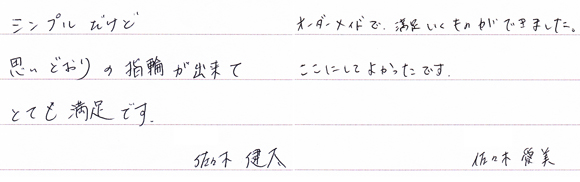 シンプルだけど
思いどおりの指輪が出来て
とても満足です.
佐々木 健太
オーダーメイドで、満足いくものができました。
ここにしてよかったです.
佐々木 愛美